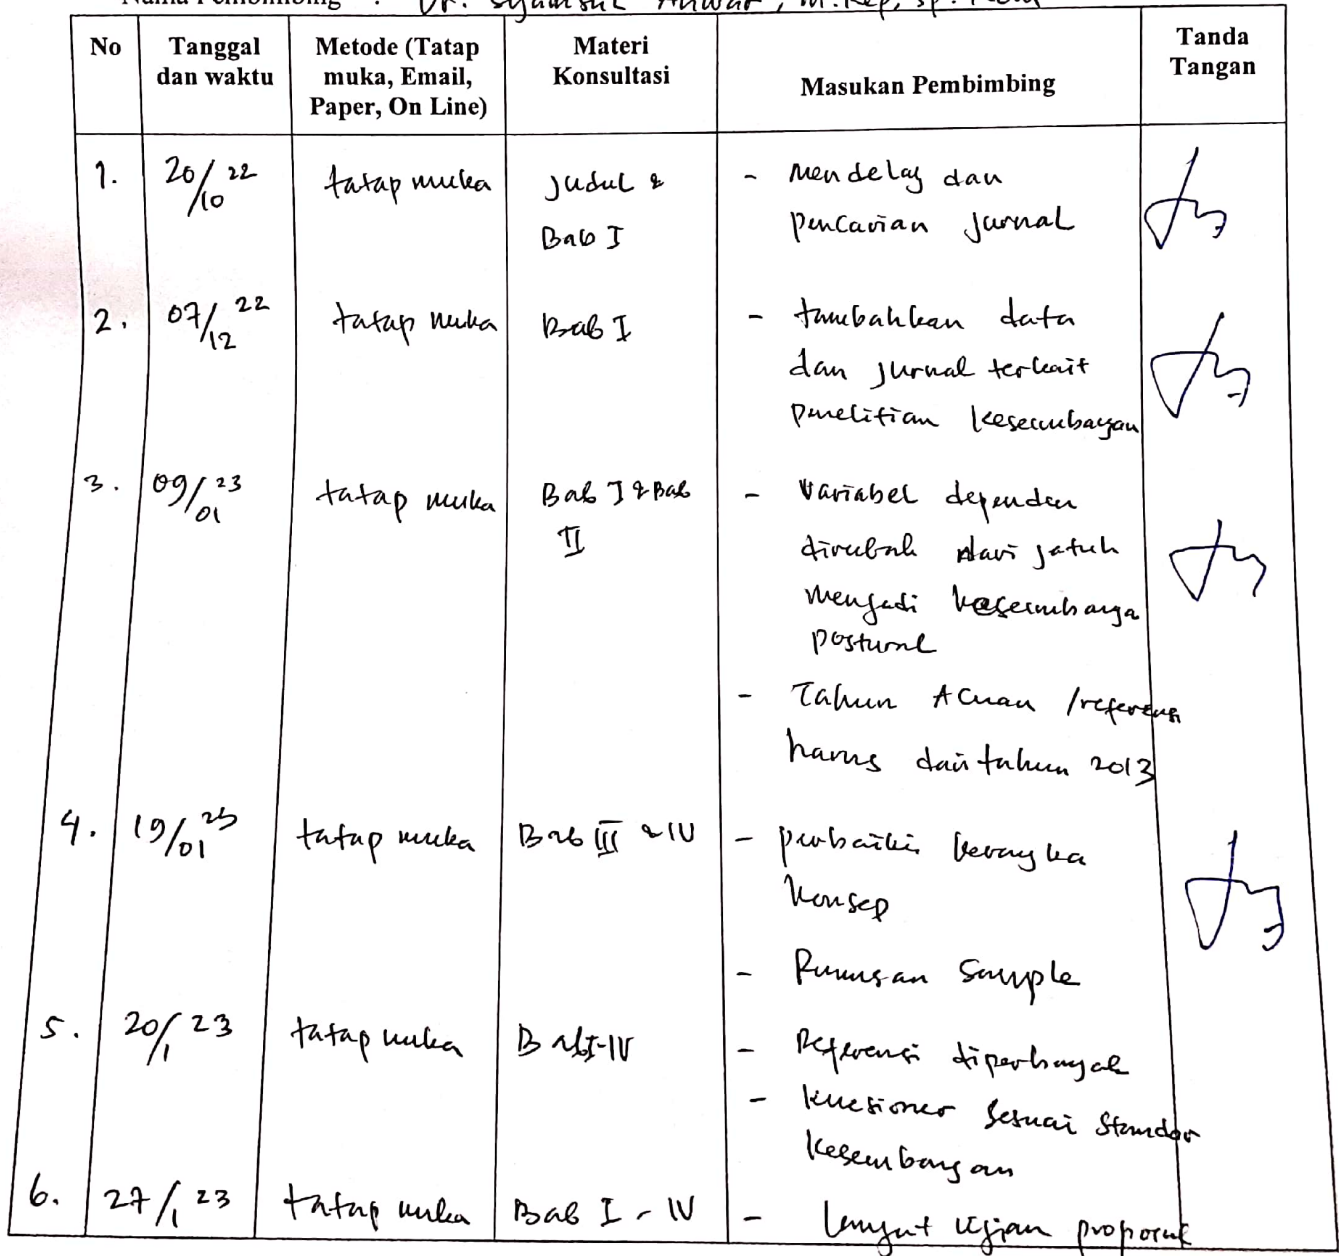 Nama Pembimbing : Dr. Syamsul Anwar, M.Kep, Sp. Kom
No Tanggal dan waktu Metode (Tatap muka, Email, Paper, On Line) Materi Konsultasi Masukan Pembimbing Tanda Tangan
1. 20/10 22 tatap muka Judul & - Mendeley dan
Bab I pencarian Jurnal
2. 07/12 22 tatap muka Bab I - tambahkan data
dan jurnal terkait
penelitian keseimbangan
3. 09/01 23 tatap muka Bab I & Bab - Variabel dependen
II dirubah dari jatuh
menjadi keseimbanga
postural
- Tahun Acuan / referensi
harus dari tahun 2013
4. 19/01 23 tatap muka Bab III & IV - perbaiki kerangka
konsep
- Rumusan Sample
5. 20/1 23 tatap muka Bab I-IV - Referensi diperbanyak
- kuesioner sesuai standar
keseimbangan
6. 27/1 23 tatap muka Bab I - IV - lanjut ujian proposal